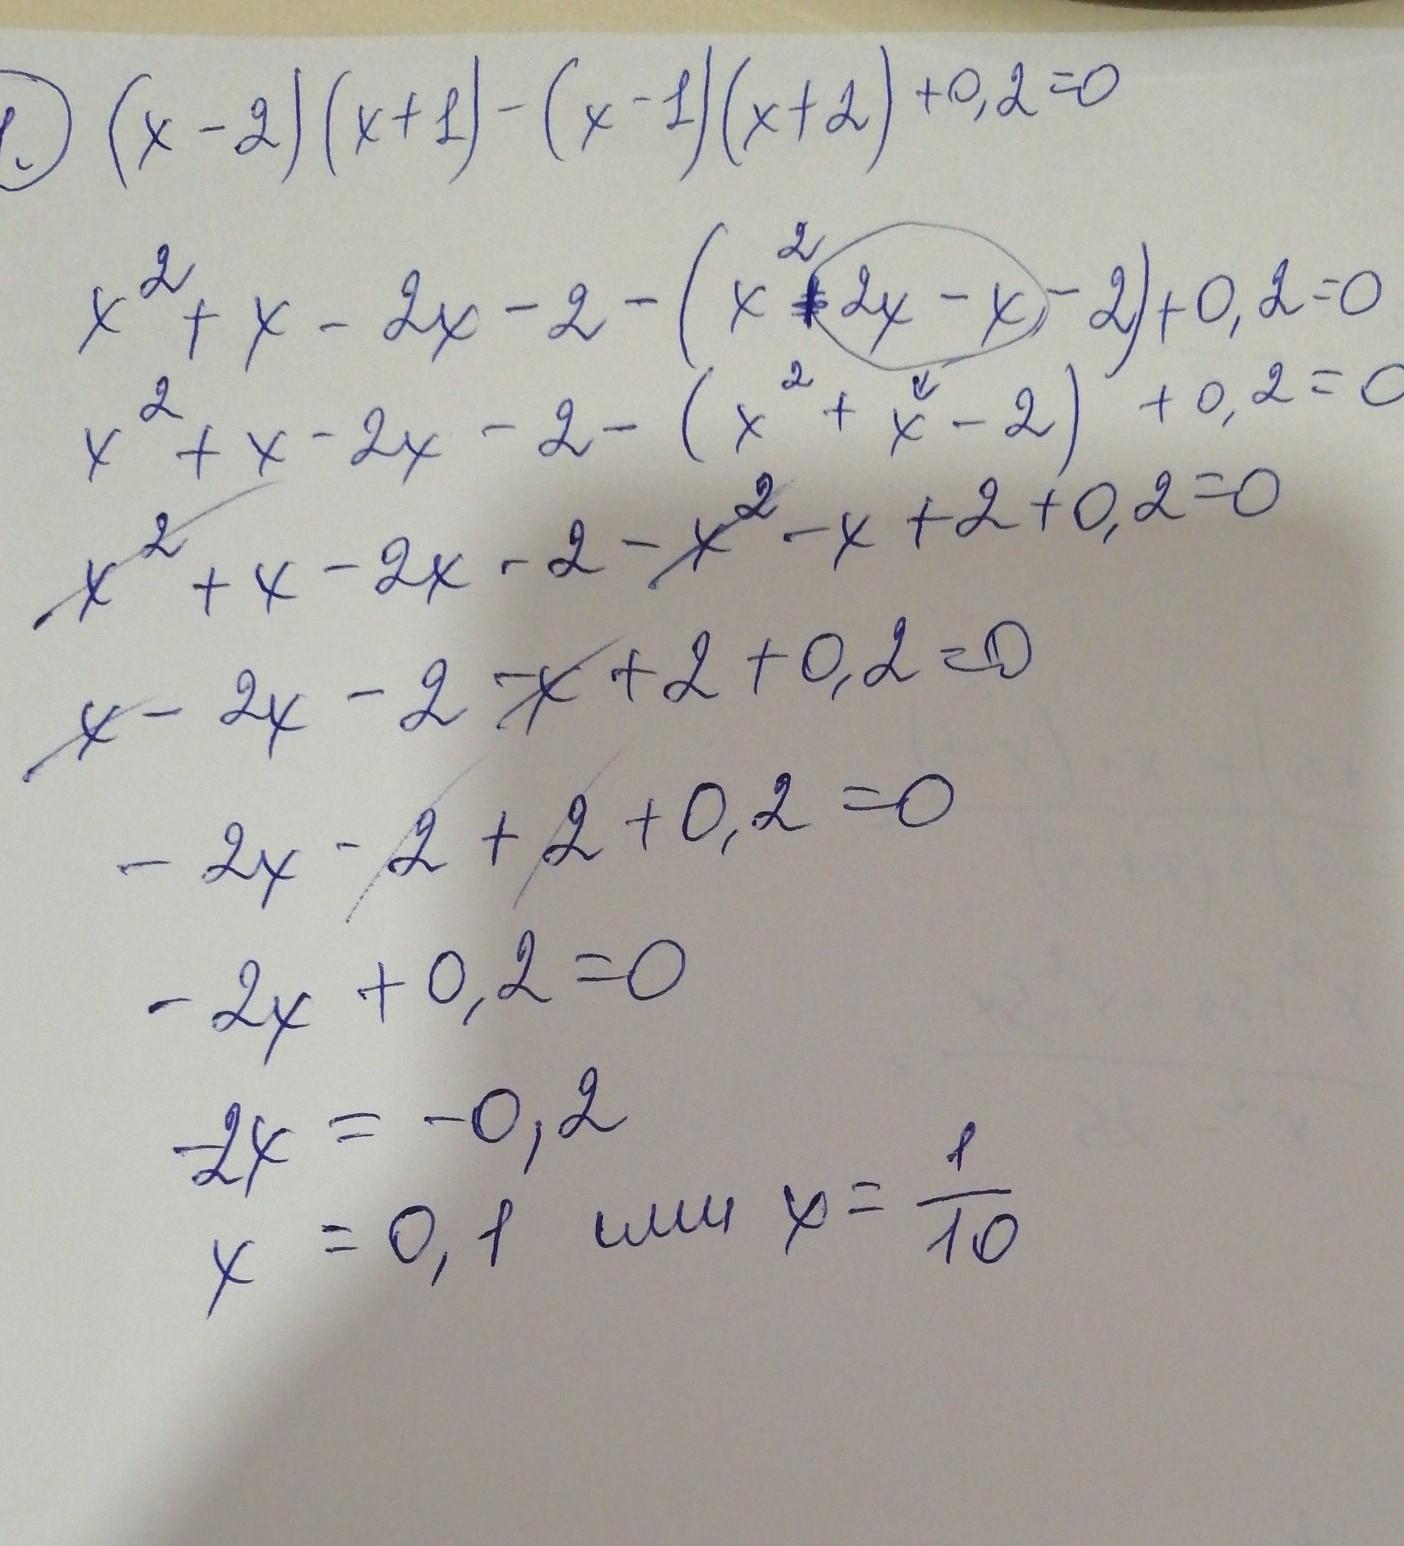 1. (x-2)(x+1)-(x-1)(x+2)+0,2=0
x²+x-2x-2-(x²+2x-x-2)+0,2=0
x²+x-2x-2-(x²+x-2)+0,2=0
x²+x-2x-2-x²-x+2+0,2=0
x-2x-2-x+2+0,2=0
-2x-2+2+0,2=0
-2x+0,2=0
-2x=-0,2
x=0,1 или x=1/10